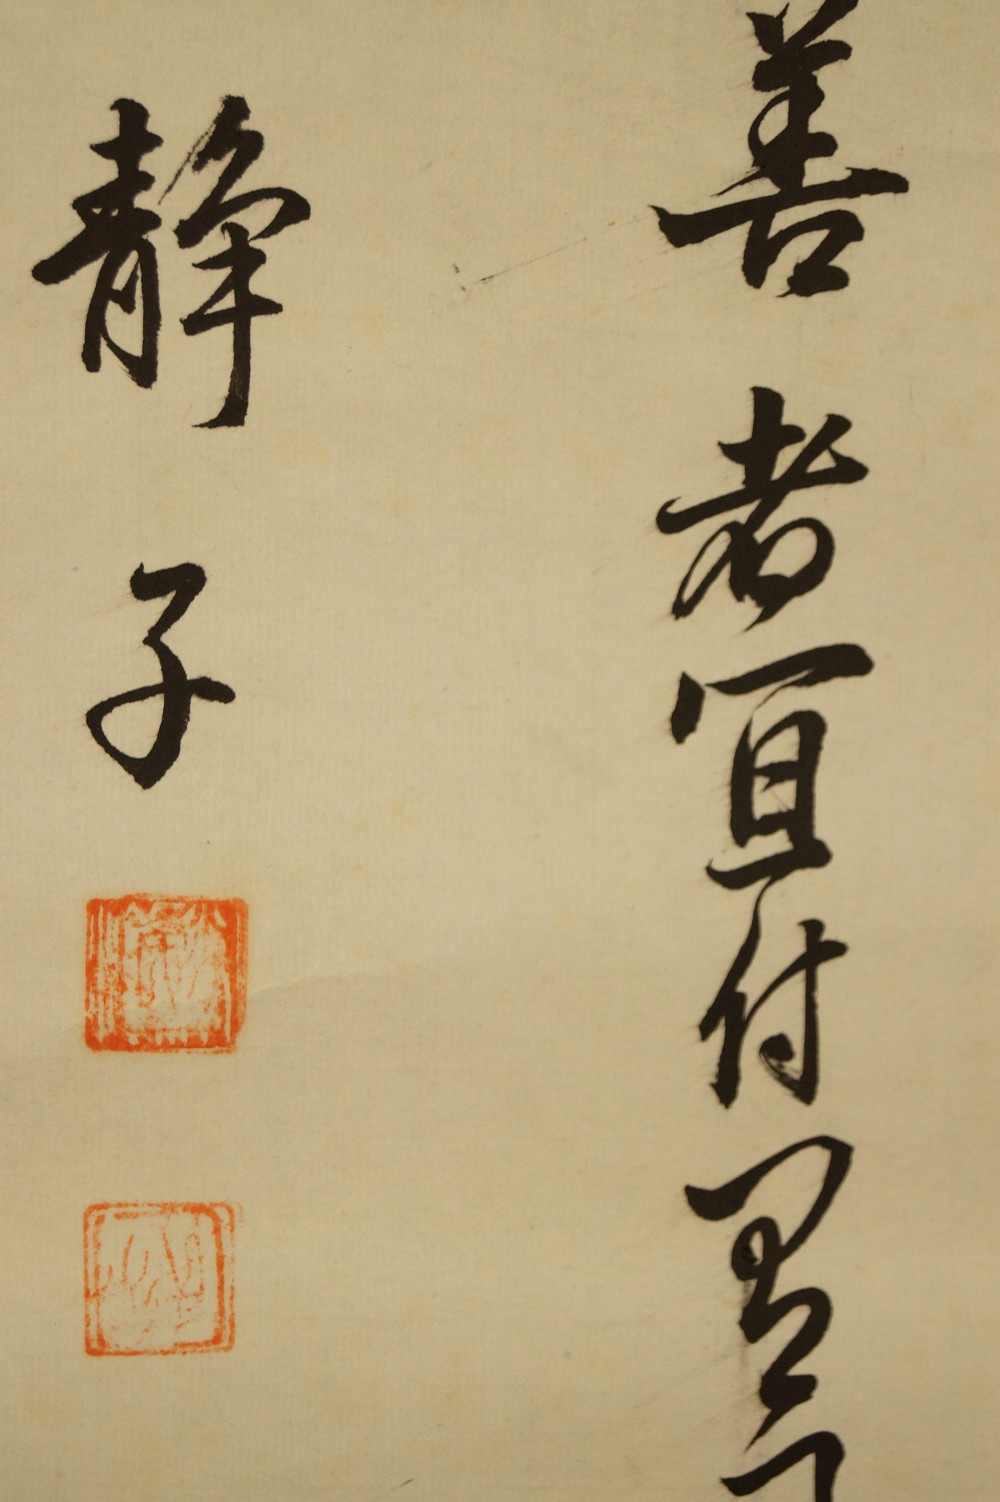 善者宜付有
静子